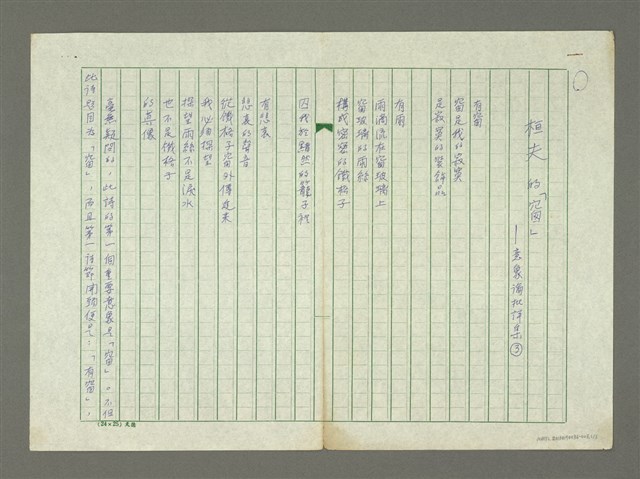 桓夫的「窗」
——意象論批評集③
有窗
窗是我的寂寞
是寂寞的裝飾品
有雨
雨滴流在窗玻璃上
窗玻璃的雨絲
構成密密的鐵格子
囚我於黯然的籠子裡
有悲哀
悲哀的聲音
從鐵格子窗外傳進來
我必須探望
探望雨絲不是淚水
也不是鐵格子
的真像
毫無疑問的，此詩的第一個重要意象是「窗」。不但
此詩題目為「窗」，而且第一詩節開動便是：「有窗」，
(24×25)